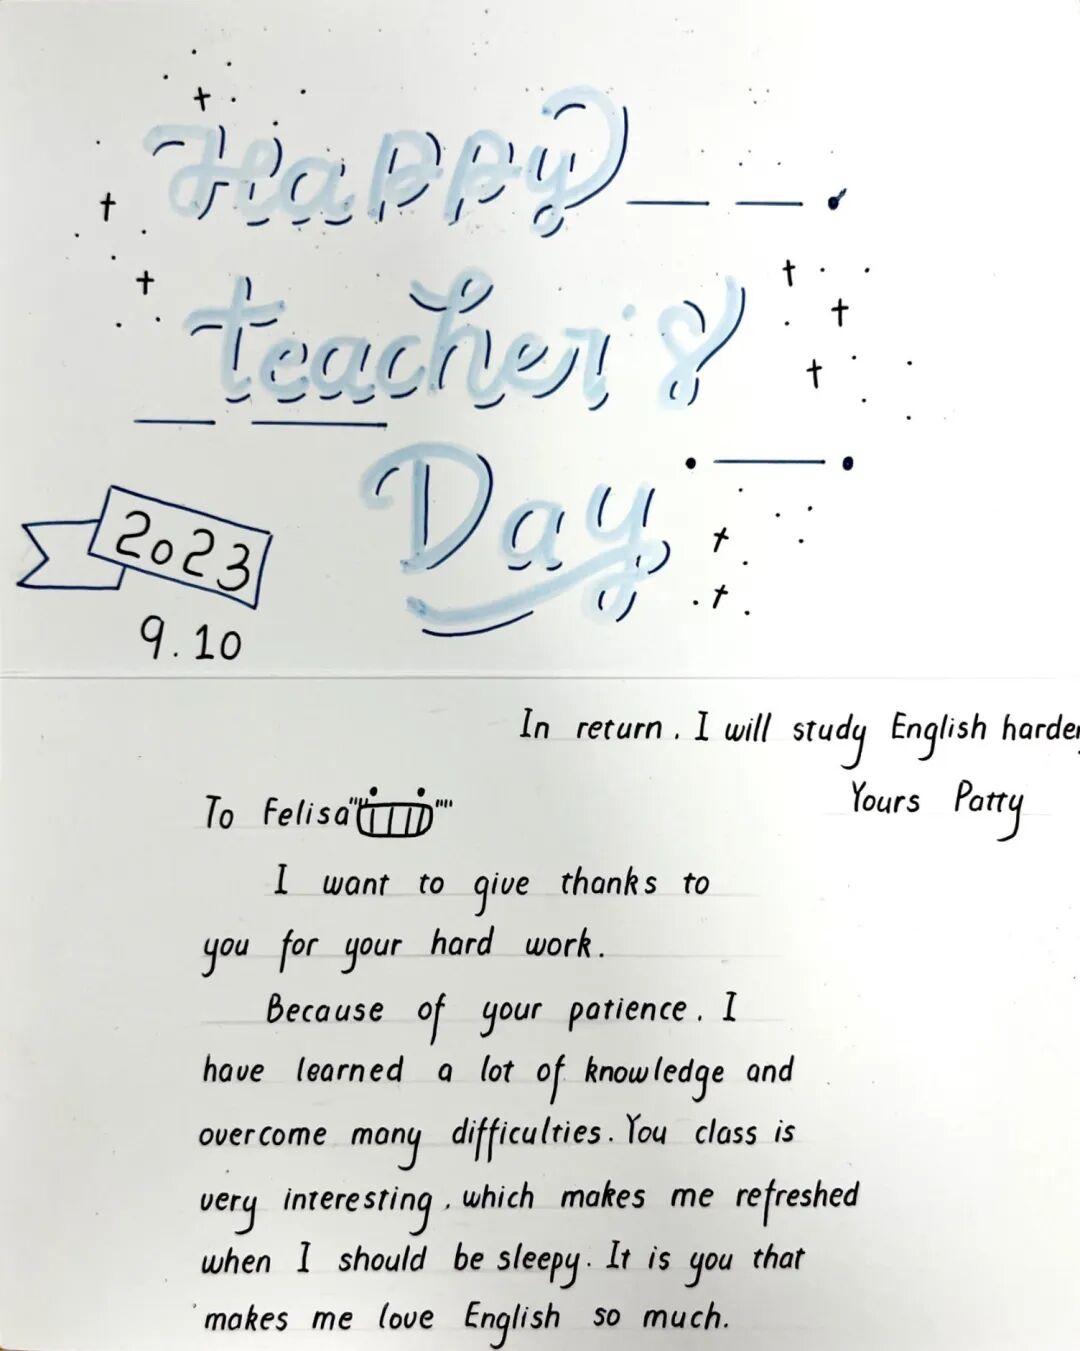 Happy
teacher's
Day
2023
9.10
To Felisa
I want to give thanks to
you for your hard work.
Because of your patience. I
have learned a lot of knowledge and
overcome many difficulties. You class is
very interesting. which makes me refreshed
when I should be sleepy. It is you that
makes me love English so much.
In return. I will study English harder
Yours Patty